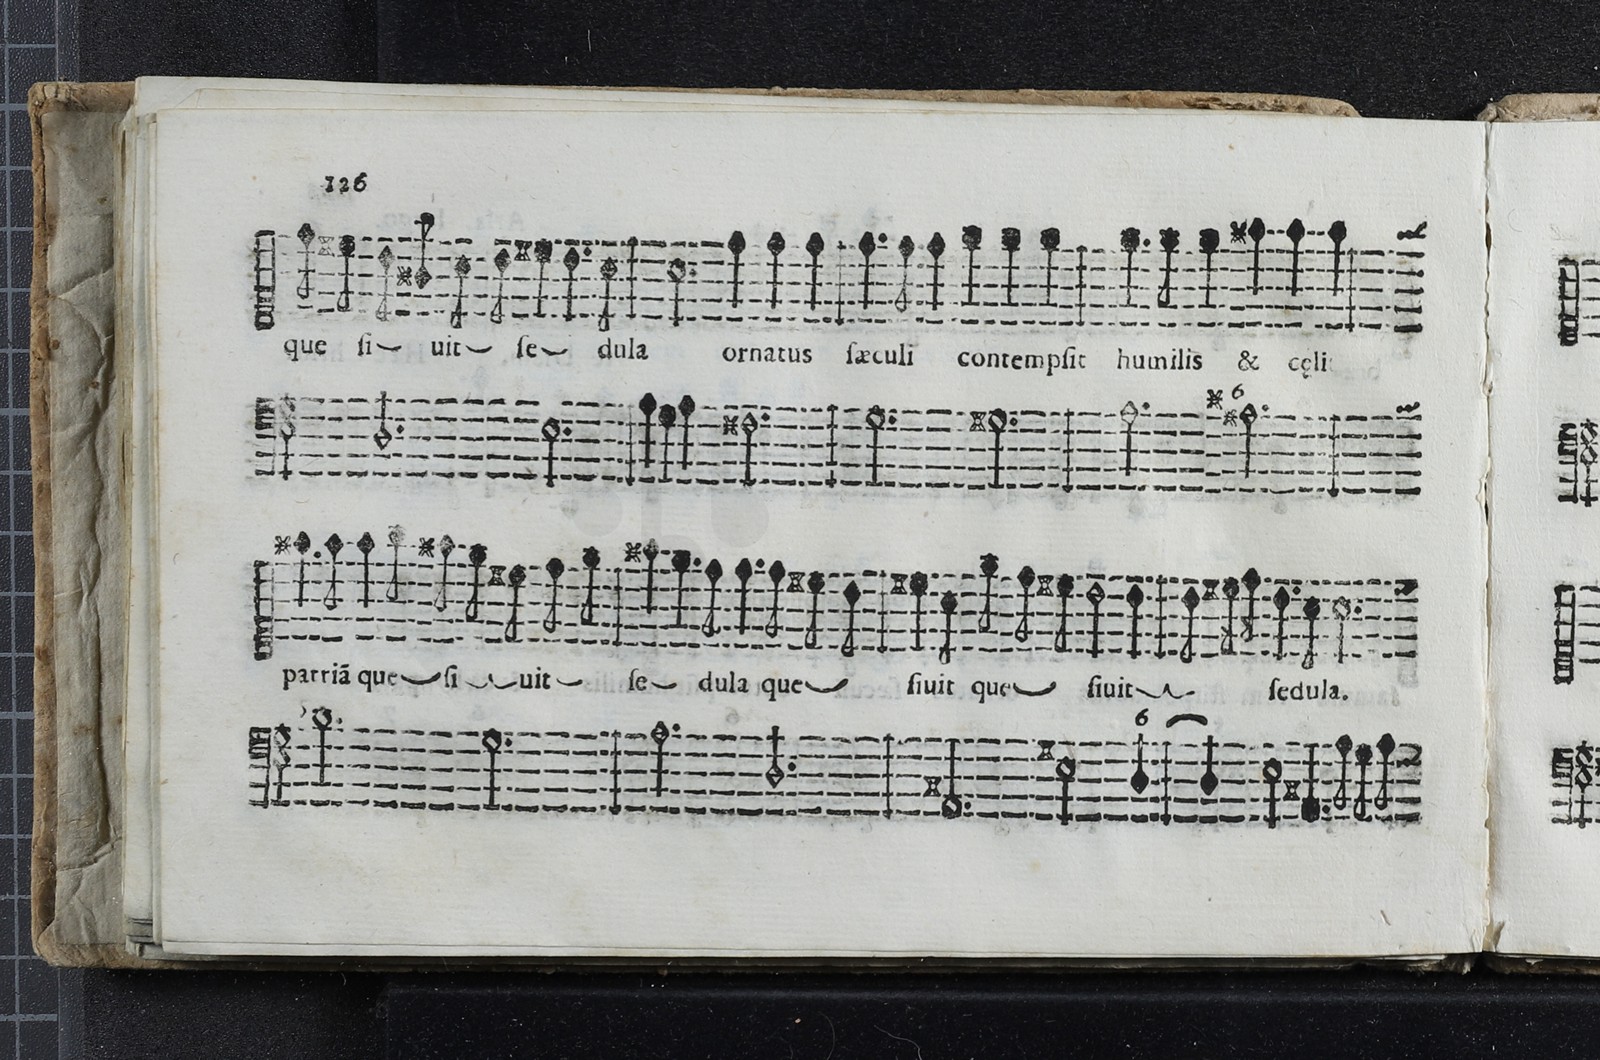 126
que si uit se dula ornatus ſæculi contempſit humilis & cęli
6
patriã que ſi uit ſe dula que ſiuit que ſiuit ſedula.
6